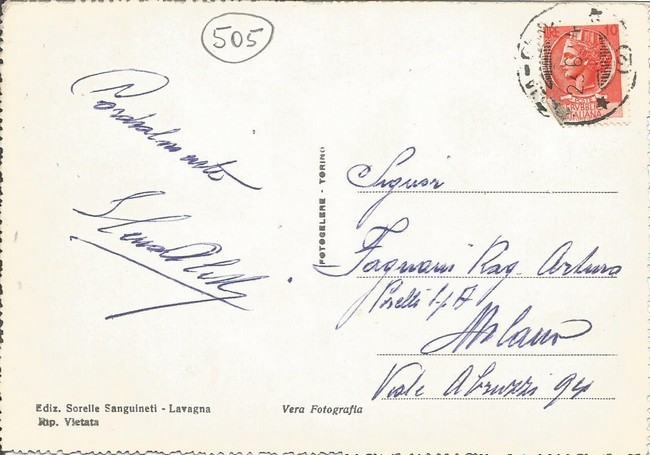 505
LIRE 10
POSTE
REPUBBLICA
ITALIANA
Cordialmente
FOTOCELERE - TORINO
Signor
Fagnani Rag. Arturo
Pirelli S.p.A
Milano
Viale Abruzzi 94
Ediz. Sorelle Sanguineti - Lavagna
Rip. Vietata
Vera Fotografia